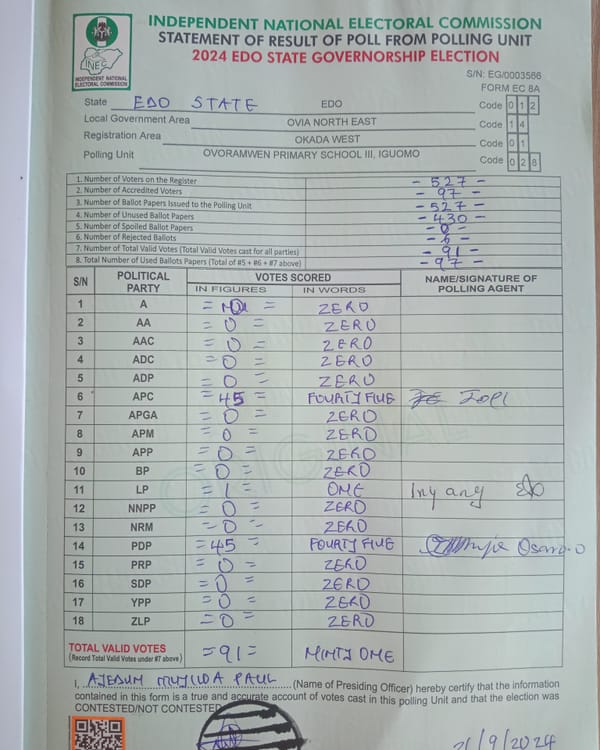 INDEPENDENT NATIONAL ELECTORAL COMMISSION
STATEMENT OF RESULT OF POLL FROM POLLING UNIT
2024 EDO STATE GOVERNORSHIP ELECTION
INEC
INDEPENDENT NATIONAL
ELECTORAL COMMISSION
S/N: EG/0003566
FORM EC 8A
State EDO STATE EDO Code 0 1 2
Local Government Area OVIA NORTH EAST Code 1 4
Registration Area OKADA WEST Code 0 1
Polling Unit OVORAMWEN PRIMARY SCHOOL III, IGUOMO Code 0 2 8
1. Number of Voters on the Register - 527 -
2. Number of Accredited Voters - 97 -
3. Number of Ballot Papers Issued to the Polling Unit - 527 -
4. Number of Unused Ballot Papers - 430 -
5. Number of Spoiled Ballot Papers - 0 -
6. Number of Rejected Ballots - 6 -
7. Number of Total Valid Votes (Total Valid Votes cast for all parties) - 91 -
8. Total Number of Used Ballots Papers (Total of #5 + #6 + #7 above) - 97 -
S/N POLITICAL PARTY VOTES SCORED NAME/SIGNATURE OF POLLING AGENT
IN FIGURES IN WORDS
1 A ZERO
2 AA = 0 = ZERO
3 AAC = 0 = ZERO
4 ADC = 0 = ZERO
5 ADP = 0 = ZERO
6 APC = 45 = FOURTY FIVE
7 APGA = 0 = ZERO
8 APM = 0 = ZERO
9 APP = 0 = ZERO
10 BP = 0 = ZERO
11 LP = 1 = OME Inyany
12 NNPP = 0 = ZERO
13 NRM = 0 = ZERO
14 PDP = 45 = FOURTY FIVE
15 PRP = 0 = ZERO
16 SDP = 0 = ZERO
17 YPP = 0 = ZERO
18 ZLP = 0 = ZERO
TOTAL VALID VOTES = 91 = MIMTY OME
(Record Total Valid Votes under #7 above)
I, PAUL (Name of Presiding Officer) hereby certify that the information
contained in this form is a true and accurate account of votes cast in this polling Unit and that the election was
CONTESTED/NOT CONTESTED
21/9/2024
ORIGINAL